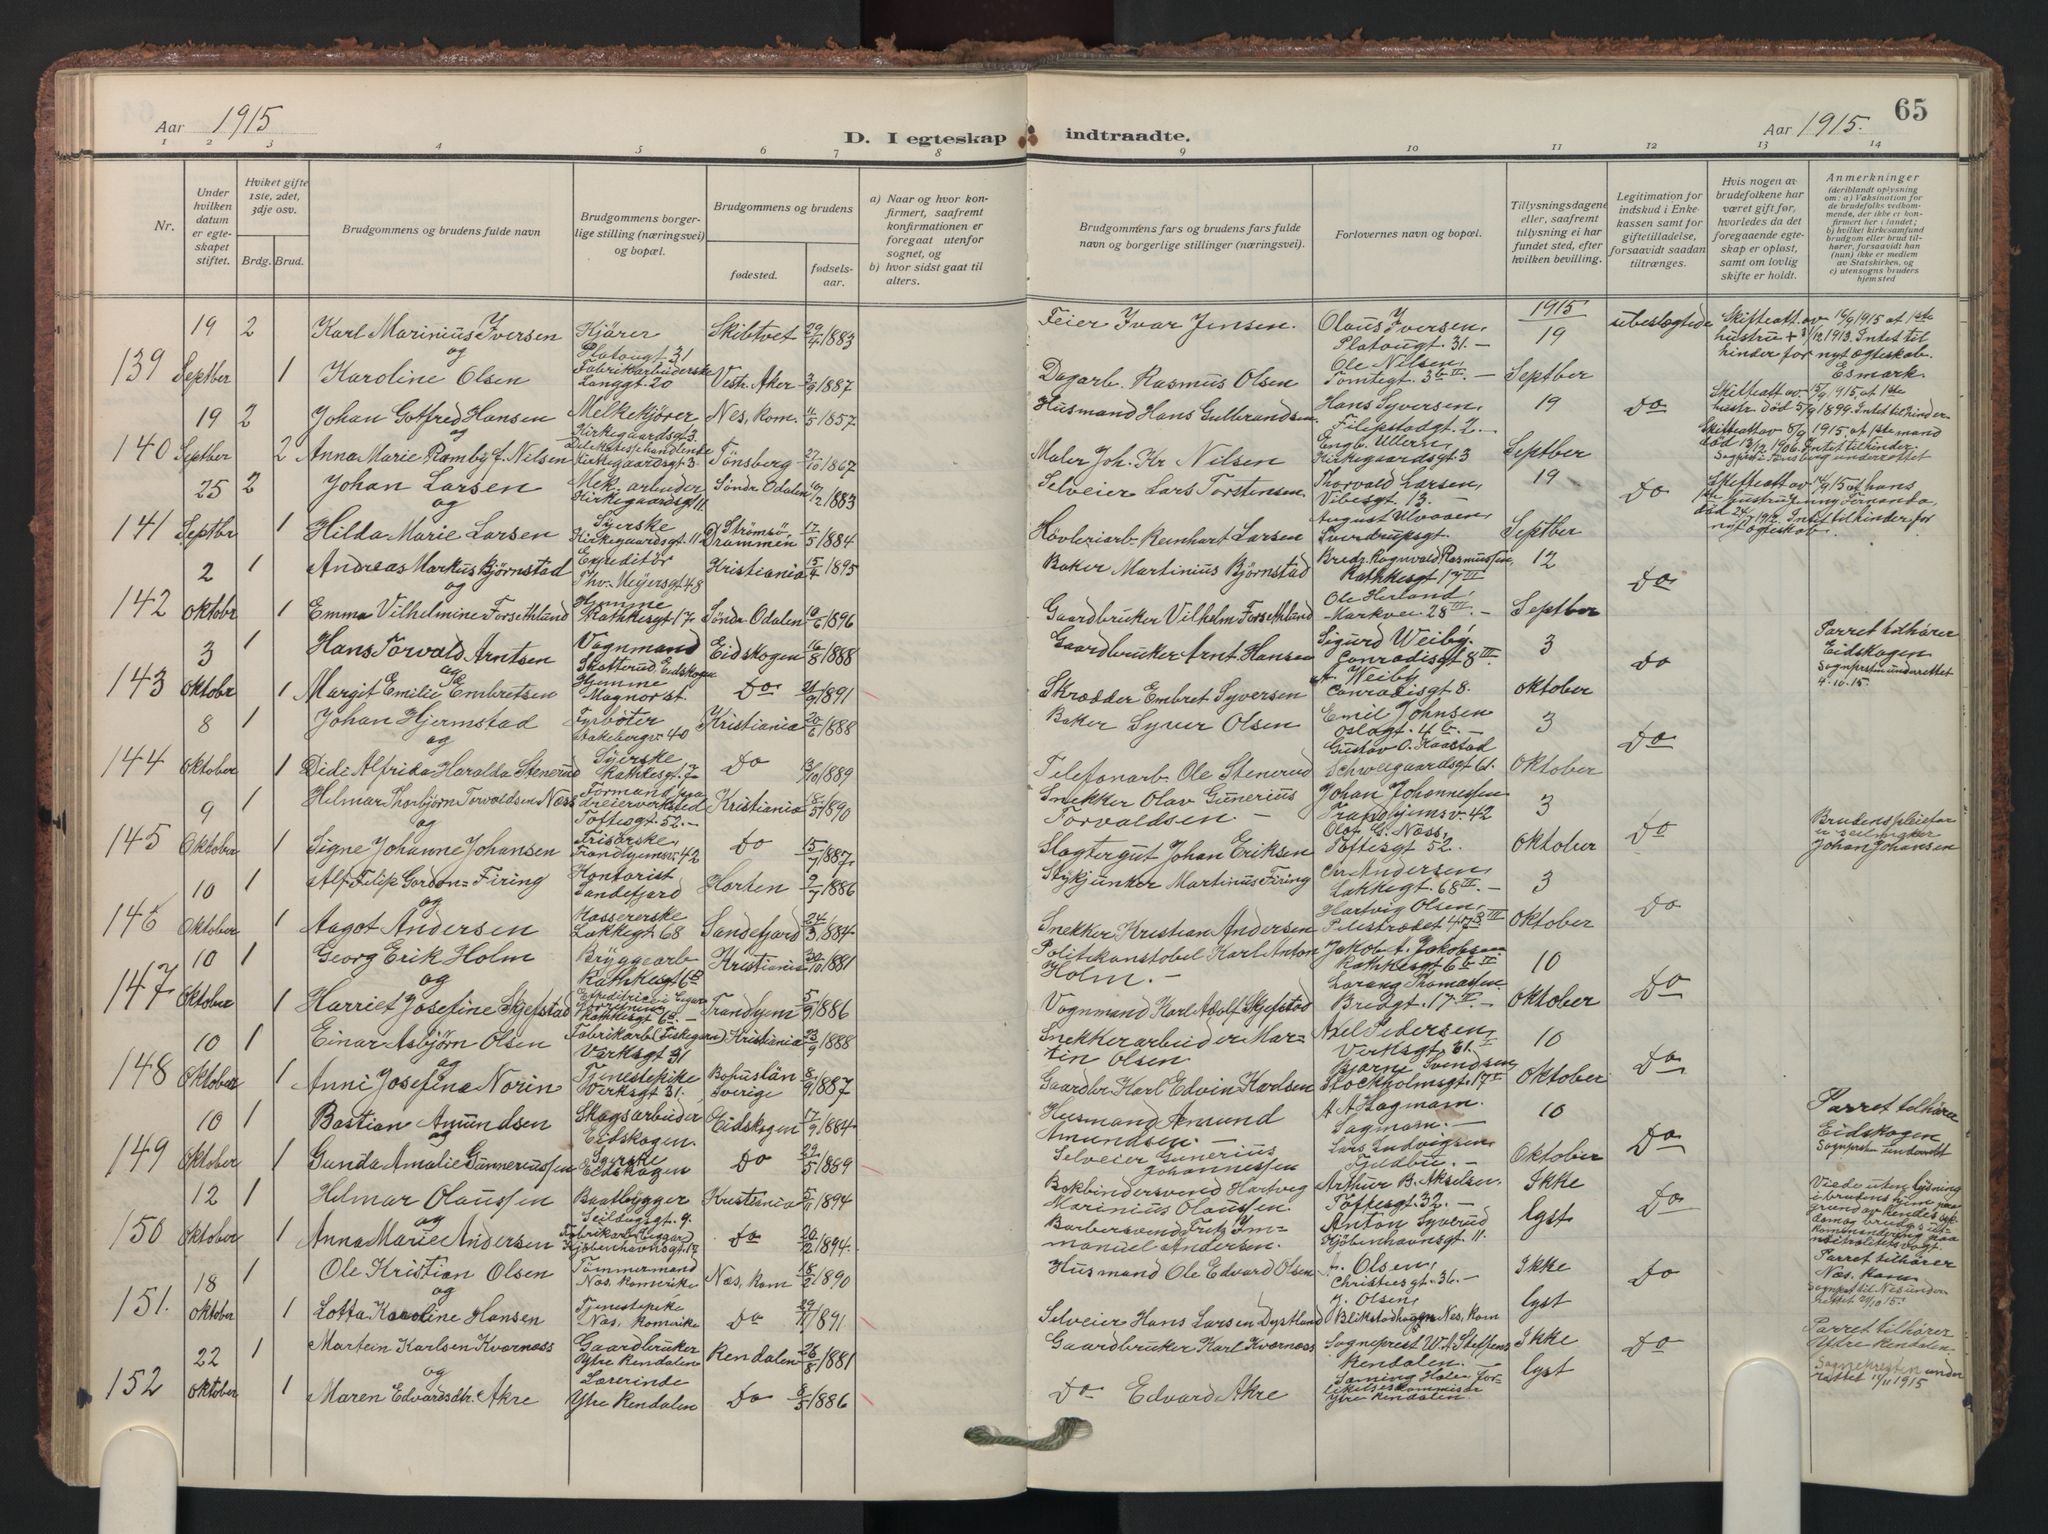 Aar 1915
D. I egteskap indtraadte.
Aar 1915.
65
1 2 3 4 5 6 7 8 9 10 11 12 13 14
Nr.
Under hvilken datum er egteskapet stiftet.
Hviket gifte 1ste, 2det, 3dje osv.
Brdg. Brud.
Brudgommens og brudens fulde navn
Brudgommens borgerlige stilling (næringsvei) og bopæl.
Brudgommens og brudens
fødested.
fødselsaar.
a) Naar og hvor konfirmert, saafremt konfirmationen er foregaat utenfor sognet, og
b) hvor sidst gaat til alters.
Brudgommens fars og brudens fars fulde navn og borgerlige stillinger (næringsvei).
Forlovernes navn og bopæl.
Tillysningsdagene eller, saafremt tillysning ei har fundet sted, efter hvilken bevilling.
Legitimation for indskud i Enkekassen samt for giftetilladelse, forsaavidt saadan tiltrænges.
Hvis nogen av brudefolkene har været gift før, hvorledes da det foregaaende egteskap er opløst, samt om lovlig skifte er holdt.
Anmerkninger
(deriblandt oplysning om: a) Vaksination for de brudefolks vedkommende, der ikke er konfirmert her i landet; b) hvilket kirkesamfund brudgom eller brud tilhører, forsaavidt han (hun) ikke er medlem av Statskirken, og c) utensogns bruders hjemsted
1915
19 2 Karl Marinius Iversen Kjører Platougt 31 Skibtvet 29/4 1883 Feier Ivar Jensen. Olaus Iversen, Platougt. 31. – 19 ubeslegtede
og
139 Septber 1 Karoline Olsen Fabrikarbeiderske Langgt 20 Vestr. Aker 1887 Dagarb. Rasmus Olsen Ole Nilsen, Tomtegt. Septber
Skifteatt av 16/9 1915 at 1ste hustru + 1913. Intet til hinder for nyt ægteskab. Esmark.
19 2 Johan Gotfred Hansen Melkekjører Kirkegaardsgt 3. Nes, Rom. 1857 Husmand Hans Gulbrandsen Hans Syversen, Filipstadgt 2. – 19 Do
og
140 Septber 2 Anna Marie Ramby f. Nilsen Delikatessehandlende Kirkegaardsgt 3 Tönsberg 27/10 1867 Maler Joh. Kr Nilsen Engb. Ullern, Kirkegaardsgt 3 Septber
Skifteatt av 1915, at 1ste hustr. död 1899. Intet til hinder
Skifteatt av 8/9 1915 at 1ste mand död 13/12 1906. Intet til hinder.
25 2 Johan Larsen Mek. arbeider Kirkegaardsgt 11 Söndr Odalen 1883 Selveier Lars Torstensen Thorvald Larsen, Vibesgt 13. – 19 Do
og
141 Septbr 1 Hilda Marie Larsen Syerske Kirkegaardsgt. 11 Strömsö, Drammen 17/5 1884 Høvleriarb. Reinhart Larsen August Sverdrupsgt. Septber
2 1 Andreas Markus Bjørnstad Expeditör Thv. Meyersgt 48 Kristiania 15/4 1895 Baker Martinius Bjørnstad Bredg. Ragnvald Rasmussen, Rathkesgt 17 III 12 Do
og
142 Oktobr 1 Emma Vilhelmine Forsethlund Hjemme Rathkesgt 17 Söndr Odalen 1896 Gaardbruker Vilhelm Forsethlund Ole Herland, Markvei. 28 III. – Septber
3 1 Hans Torvald Arntsen Vognmand Skotterud, Eidskogen Eidskogen 16/8 1888 Gaardbruker Arnt Hansen Sigurd Weiby. Conradisgt 8 III 3 Do
og
143 Oktobr 1 Margit Emilie Embretsen Hjemme Magnor st. Do 1891 Skrædder Embret Syversen Weiby Conradisgt 8. Oktober
Parret tilhører Eidskogen Sognprstn underrettet 4-10-15.
8 1 Johan Hjermstad Fyrböter Kristiania 20/6 1888 Baker Syver Olsen Emil Johnsen Oslogt. 4 b. – 3 Do
og
144 Oktober 1 Didi Alfrida Haralda Stenerud Syerske Rathkesgt. 7 Do 1889 Telefonarb. Ole Stenerud Gustav O. Kaastad Schweigaardsgt 61. Oktober
9 1 Helmar Thorbjørn Torvaldsen Næss Formand paa dreierverksted Toftesgt 52. – Kristiania 18/5 1890 Snekker Olav Gunerius Torvaldsen – Johan Johannessen Trondhjemsv. 42 3 Do
og
145 Oktober 1 Signe Johanne Johansen Frisörske, Trondhjemsv. 42 Do 1887 Slagtergut Johan Eriksen Olaf G. Næss, Toftesgt 52. Oktober
Brudens pleiefar er seilmaker Johan Johansen
10 1 Alf Filip Gordon=Firing Kontorist Sandefjord Horten 1886 Stykjunker Martinus Firing Chr. Andersen, Lakkegt. 68 III. – 3 Do
og
146 Oktober 1 Aagot Andersen Kassererske Lakkegt 68 Sandefjord 24/3 1884 Snekker Kristian Andersen Hartvig Olsen, Pilestrædet 47 III Oktober
10 1 Georg Erik Holm Bryggearb Rathkesgt 6 Kristiania 30/10 1881 Politikonstabel Karl Anton Holm. – Jakob A. Jakobsen Rathkesgt 6 10 Do
og
147 Oktober 1 Harriet Josefine Skjefstad Rathkesgt 6 – Trondhjem 5/9 1886 Vognmand Karl Adolf Skjefstad Lorang Thomassen Bredgt. 17 – Oktober
10 1 Einar Asbjørn Olsen Fabrikarb. Verksgt 31. Kristiania 23/9 1888 Snekkerarbeider Martin Olsen Axel Pedersen Verksgt. 31. – 10 Do
og
148 Oktober 1 Anni Josefina Norin Tjenestepike Verksgt 31. Bohuslän Sverige 8/9 1887 Gaardbr Karl Edvin Karlsen Bjarne Svendsen Stockholmsgt. 17 Oktober
10 1 Bastian Amundsen Skogsarbeider Eidskogen. Eidskogen 17/9 1884 Husmand Amund Amundsen. – A A Hagmam. Sagmam. – 10 Do
og
149 Oktober 1 Gunda Amalie Gunneriussen Syerske Eidskogen Do 29/5 1889 Selveier Gunerius Johannessen Lars Ludvigsen, – Oktober
Parret tilhører Eidskogen Sognprst underrett
12 1 Helmar Olaussen Baatbygger Seildugsgt. 9. Kristiania 5/11 1894 Bokbindersvend Hartvig Marinius Olaussen. Arthur B. Akselsen. Toftesgt. 32. – Ikke Do
og
150 Oktober 1 Anna Marie Andersen Kjöbenhavnsgt 12 Do 20/12 1894. Barbersvend Fritz Immanuel Andersen. Anton Syverud Kjöbenhavnsgt 11. lyst
Viede uten lysning i brudens hjem paa grund av hendes sykdom og brudgs utkommandering paa neitralitetsvagt.
18 1 Ole Kristian Olsen Tömmermand Nes, Romerike Nes, Rom 18/2 1890 Husmand Ole Edvard Olsen Olsen, Christiesgt. 36. – Ikke Do
og
151. Oktober 1 Lotta Karoline Hansen Tjenestepike Nes, Romerike Do 1891 Selveier Hans Larsen Dystland J. Olsen, Nes, Rom lyst
Parret tilhører Nes, Rom. Sognpst til Nes underrettet 21/10 15.
22 1 Martein Karlsen Kværnæss Gaardbruker Ytre Rendalen Rendalen 26/8 1881 Gaardbruker Karl Kværnæss Sogneprest W. A Steffens Rendalen. – Ikke Do
og
152 Oktober 1 Maren Edvardsdtr. Akre Lærerinde Ytre Rendalen Do 1886 Do Edvard Akre Ytre Rendalen. lyst
Parret tilhører Yttre Rendalen. Sognepresten underrettet 1915